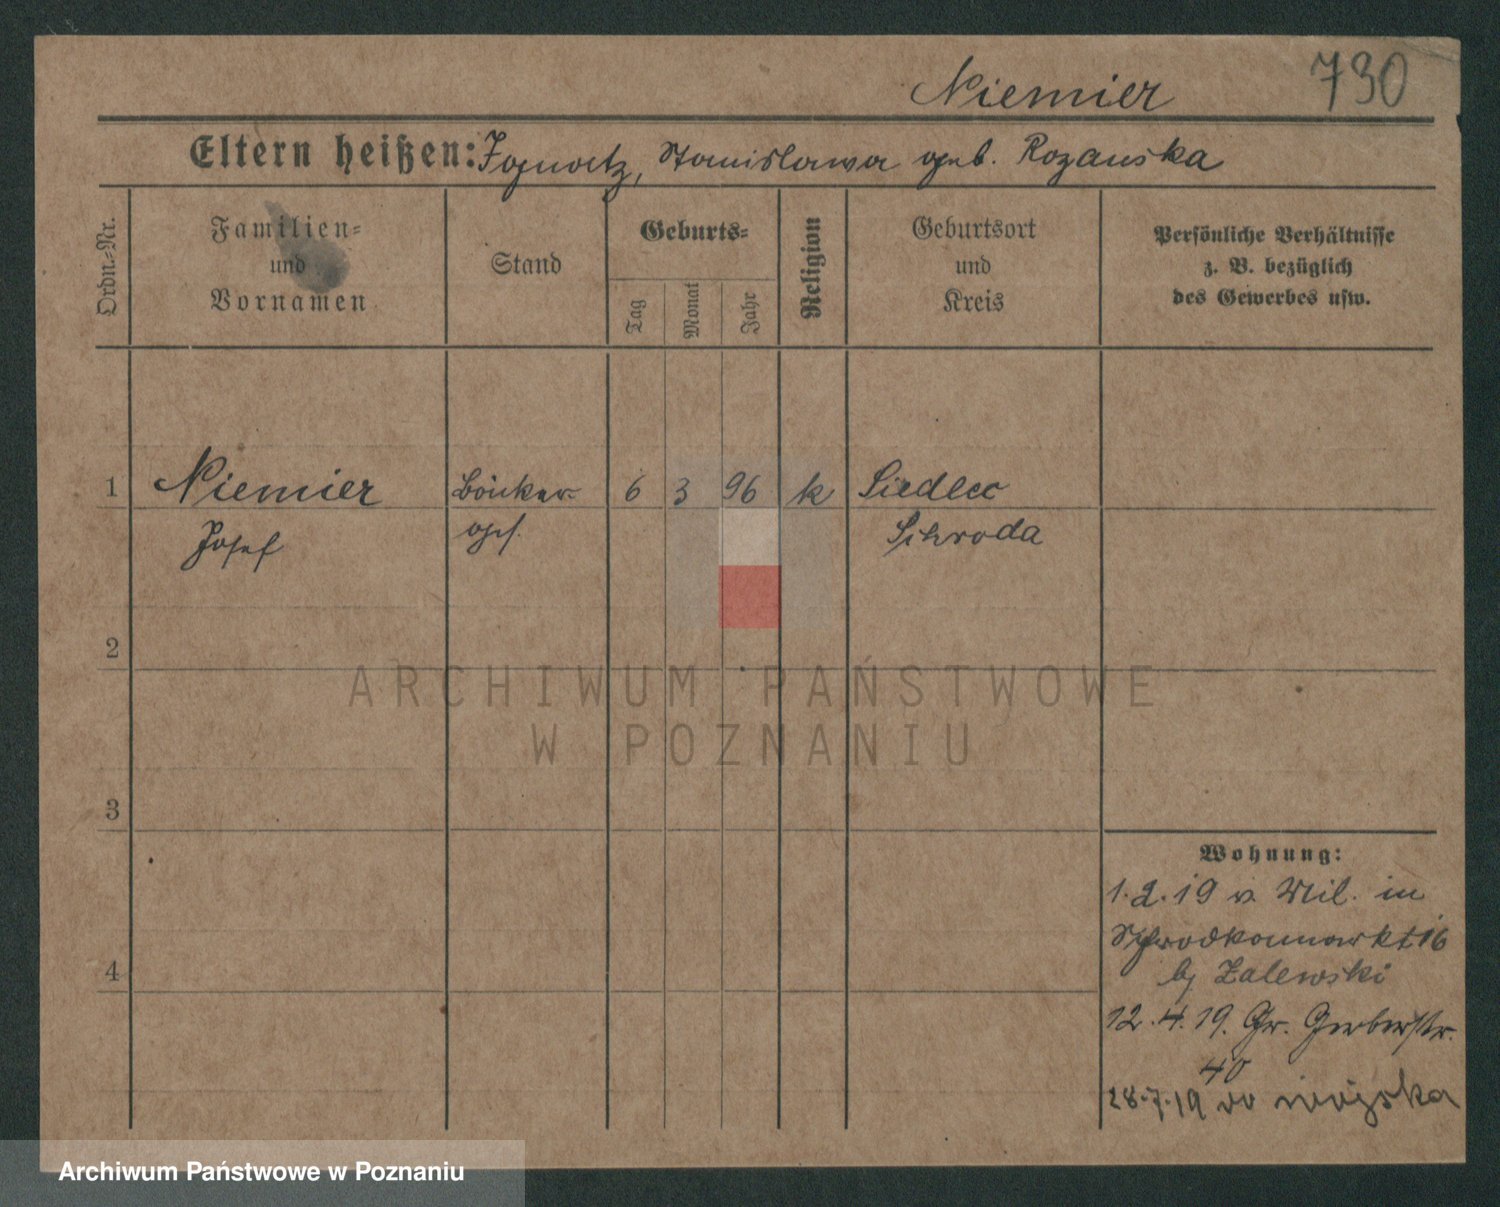 Niemier 730
Eltern heißen: Ignatz, Stanislawa geb. Rozanska
Ordn.-Nr.
Familien-
und
Vornamen
Stand
Geburts-
Tag
Monat
Jahr
Religion
Geburtsort
und
Kreis
Persönliche Verhältnisse
z. B. bezüglich
des Gewerbes usw.
1 Niemier Bäcker- 6 3 96 k Siedlec
Josef ges. Schroda
2
3
4
Wohnung:
1.2.19 v. Mil. in
Schrodkamarkt 16
by Zalewski
12.4.19. Gr. Gerberstr.
40
28.7.19 do wojska
ARCHIWUM PAŃSTWOWE
W POZNANIU
Archiwum Państwowe w Poznaniu